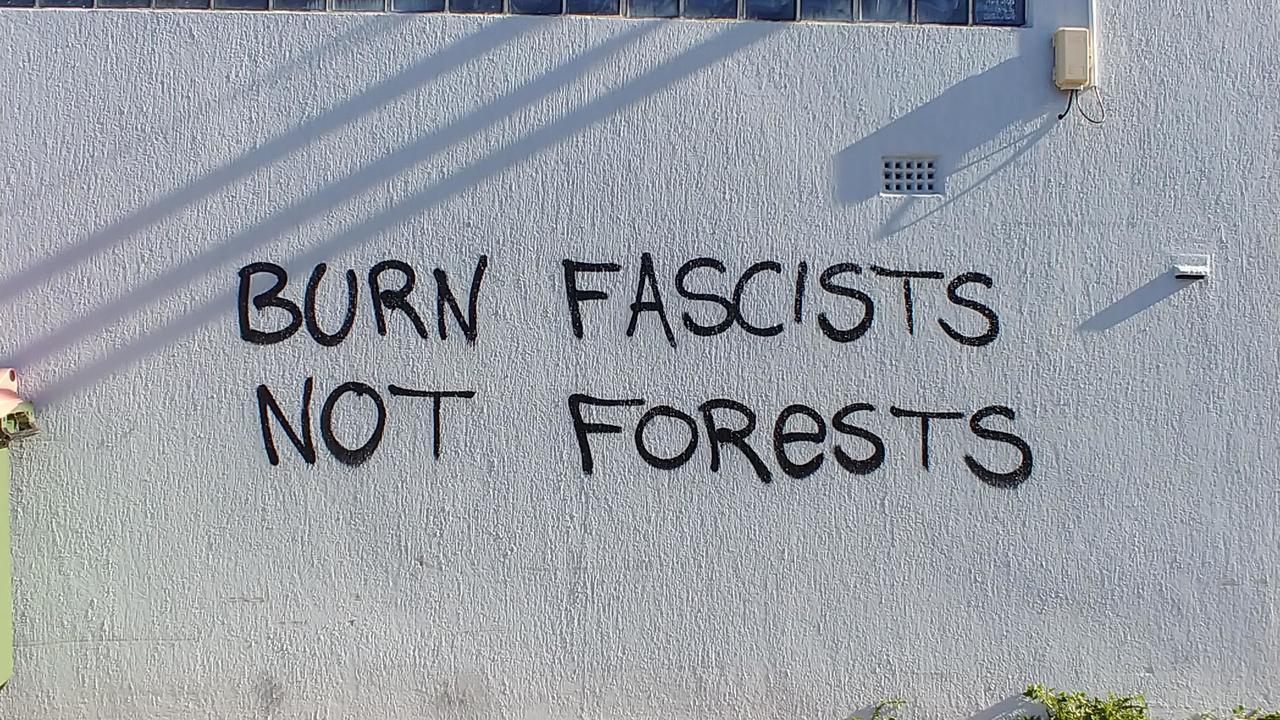 BURN FASCISTS
NOT FOReSTS